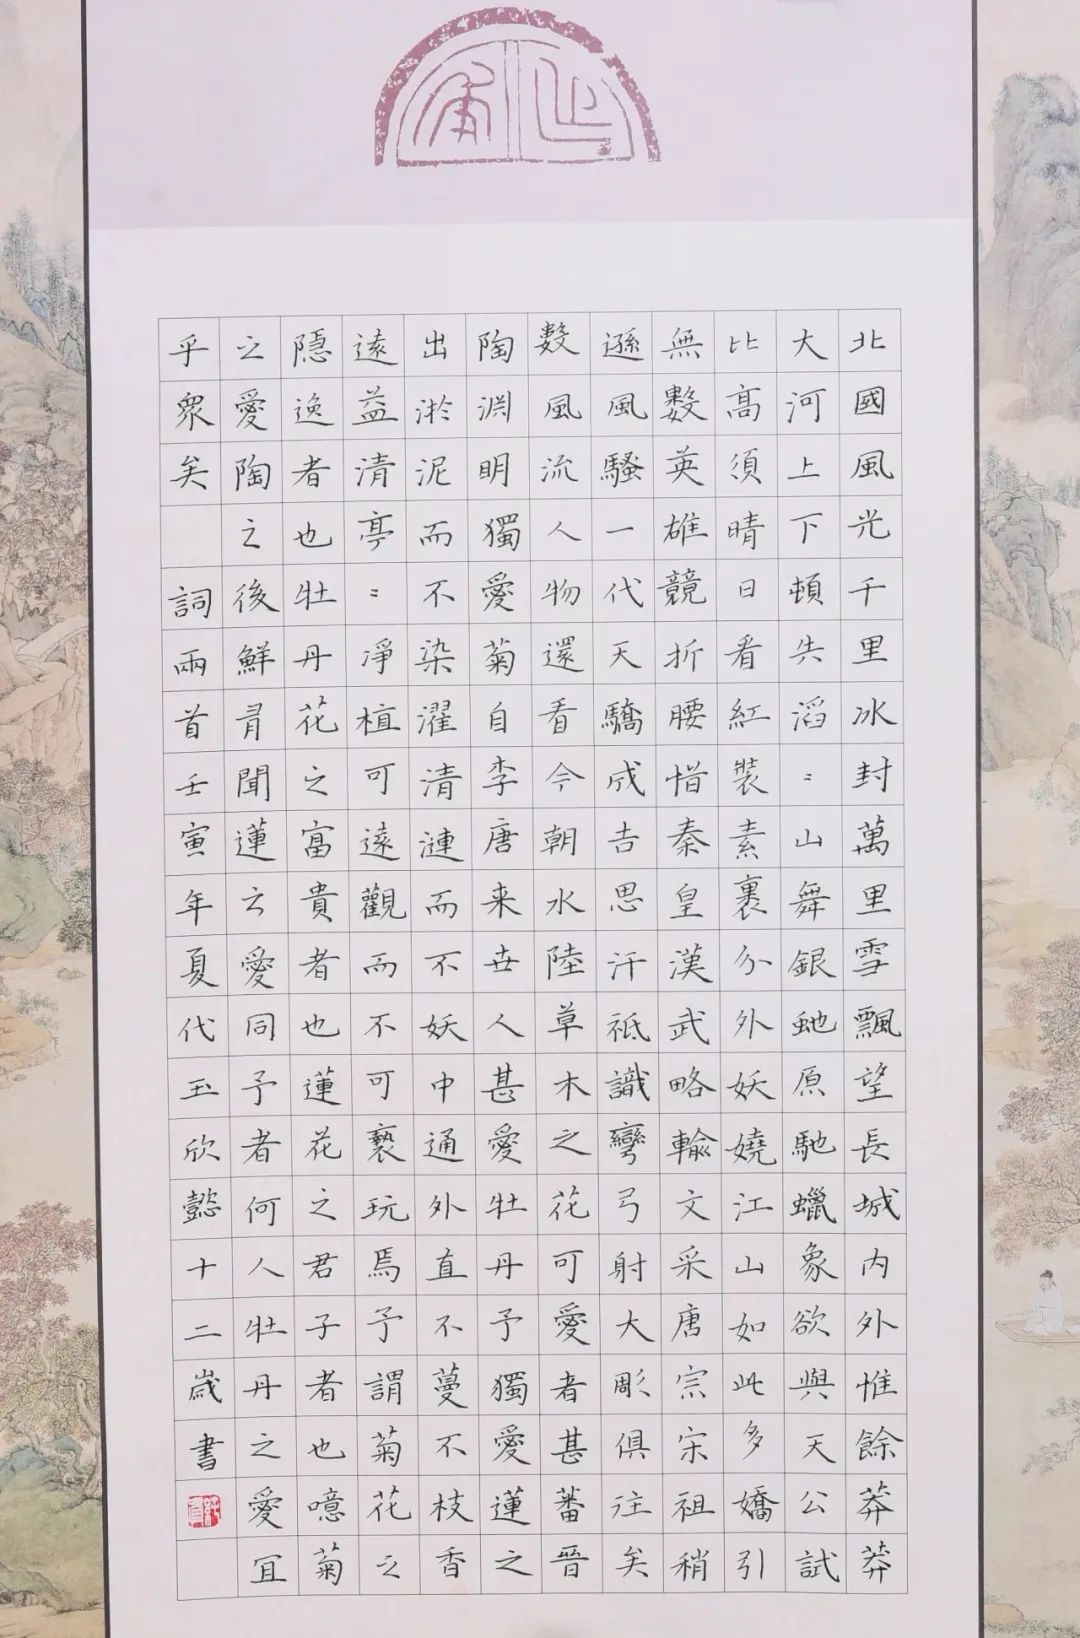 北國風光千里冰封萬里雪飄望長城內外惟餘莽莽
大河上下頓失滔〻山舞銀虵原馳蠟象欲與天公試
比高須晴日看紅裝素裹分外妖嬈江山如此多嬌引
無數英雄競折腰惜秦皇漢武略輸文采唐宗宋祖稍
遜風騷一代天驕成吉思汗祗識彎弓射大彫俱往矣
數風流人物還看今朝水陸草木之花可愛者甚蕃晉
陶淵明獨愛菊自李唐来世人甚愛牡丹予獨愛蓮之
出淤泥而不染濯清漣而不妖中通外直不蔓不枝香
遠益清亭〻淨植可遠觀而不可褻玩焉予謂菊花之
隱逸者也牡丹花之富貴者也蓮花之君子者也噫菊
之愛陶之後鮮有聞蓮云愛同予者何人牡丹之愛宜
乎眾矣 詞兩首壬寅年夏代玉欣懿十二歲書